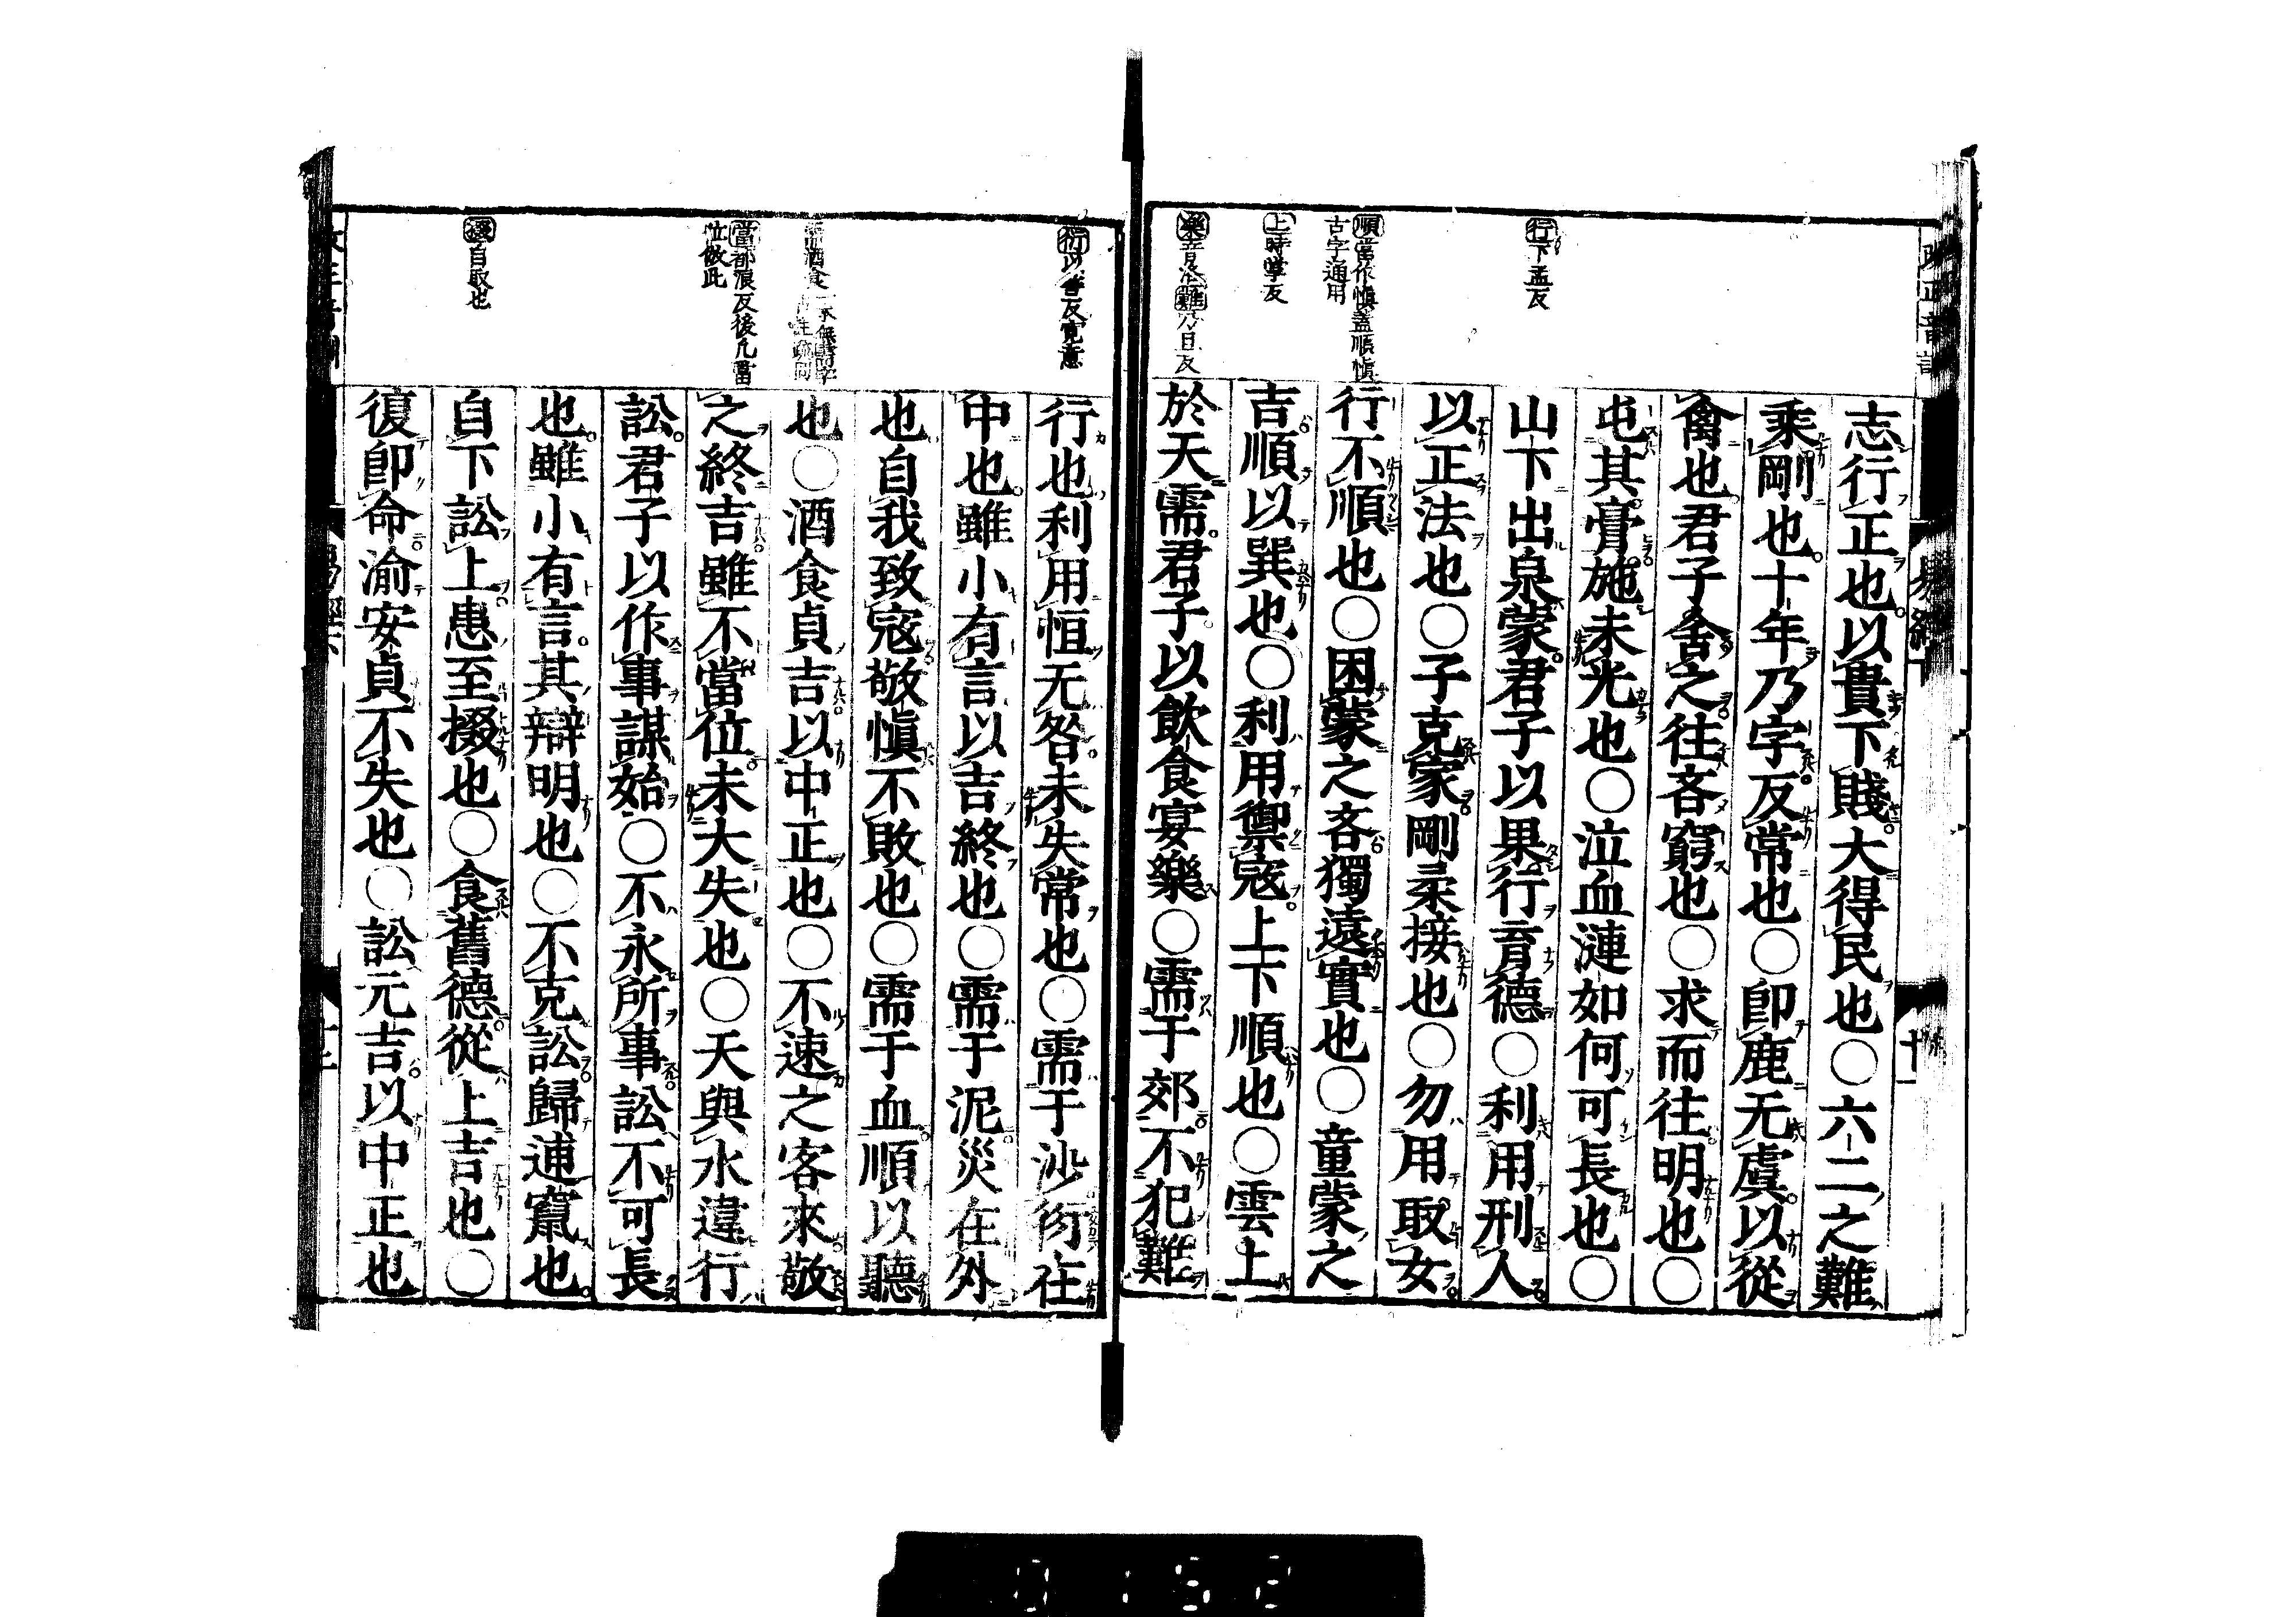 行下孟反
順當作愼蓋順愼
古字通用
上時掌反
樂音洛難乃旦反
志行正也以貴下賤大得民也○六二之難
乘剛也十年乃字反常也○卽鹿无虞以從
禽也君子舍之往吝窮也○求而往明也○
屯其膏施未光也○泣血漣如何可長也○
山下出泉蒙君子以果行育德○利用刑人
以正法也○子克家剛柔接也○勿用取女
行不順也○困蒙之吝獨遠實也○童蒙之
吉順以巽也○利用禦寇上下順也○雲上
於天需君子以飲食宴樂○需于郊不犯難
易經
十一
衍以善反寬意
酒食
當都浪反後凡當
位倣此
掇自取也
行也利用恒无咎未失常也○需于沙衍在
中也雖小有言以吉終也○需于泥災在外
也自我致寇敬愼不敗也○需于血順以聽
也○酒食貞吉以中正也○不速之客來敬
之終吉雖不當位未大失也○天與水違行
訟君子以作事謀始○不永所事訟不可長
也雖小有言其辯明也○不克訟歸逋竄也
自下訟上患至掇也○食舊德從上吉也○
復卽命渝安貞不失也○訟元吉以中正也